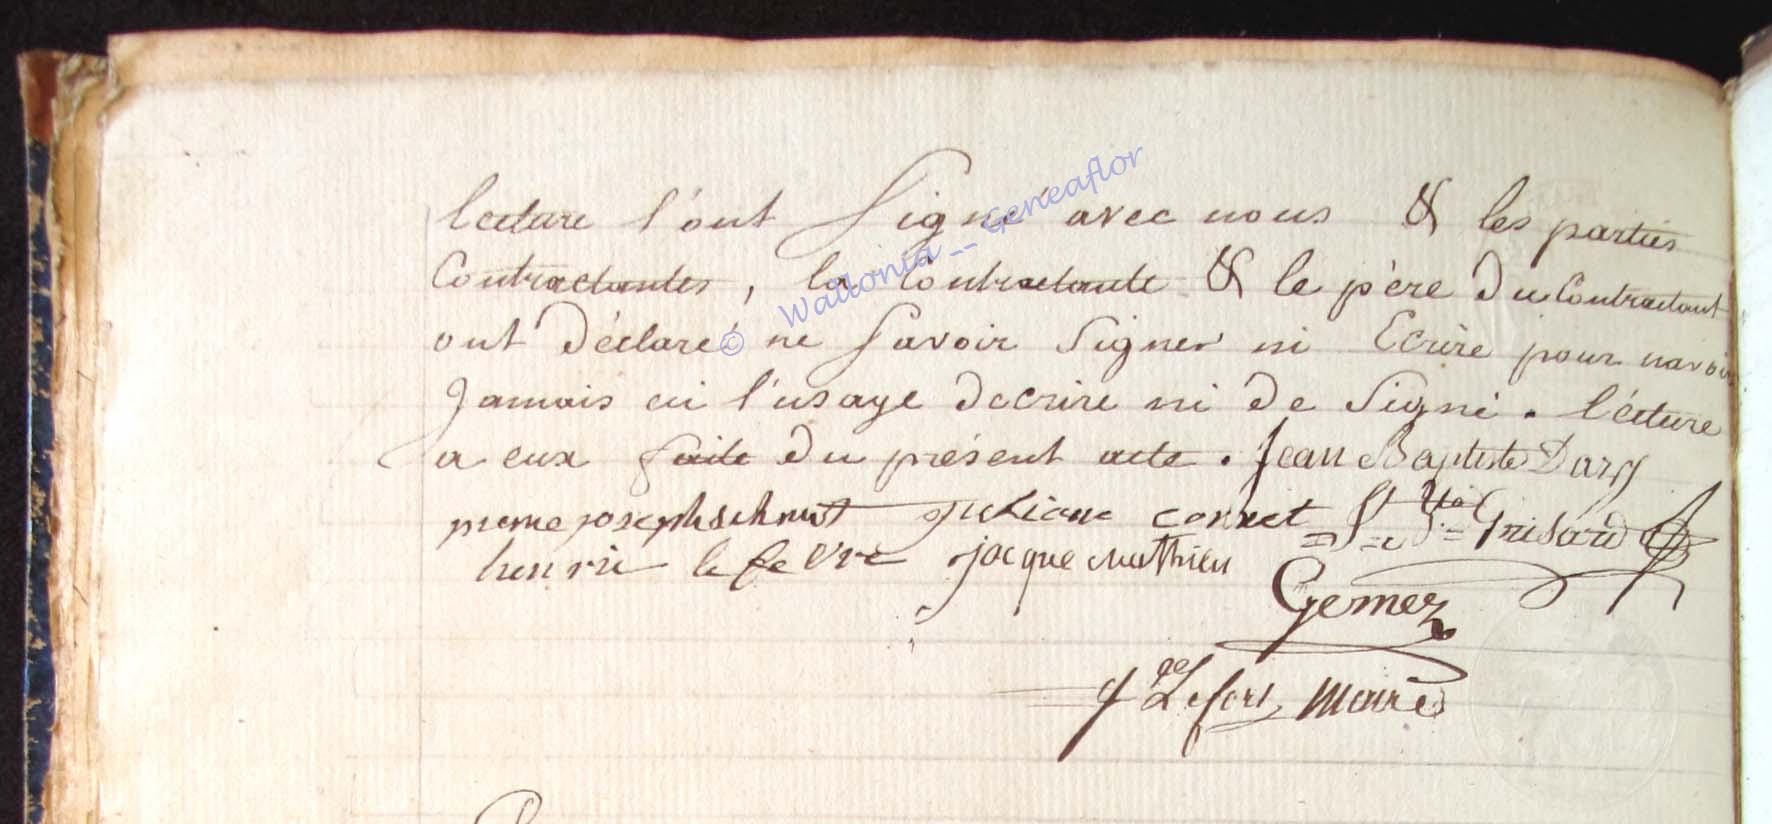 lecture l'ont Signé avec nous & les parties
Contractantes, la Contractante & le père du Contractant
ont déclaré ne Savoir Signer ni Ecrire pour navoir
Jamais eu l'usage decrire ni de Signé. lécture
a eux faite du présent acte. Jean Baptiste Dary
joseph corret Grisard
henrie le fevre jacque Mathieu
Gernez
Lefort Maire
© Wallonia -- Geneaflor